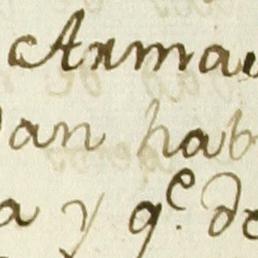 Armad
dan hab
a y q.e de